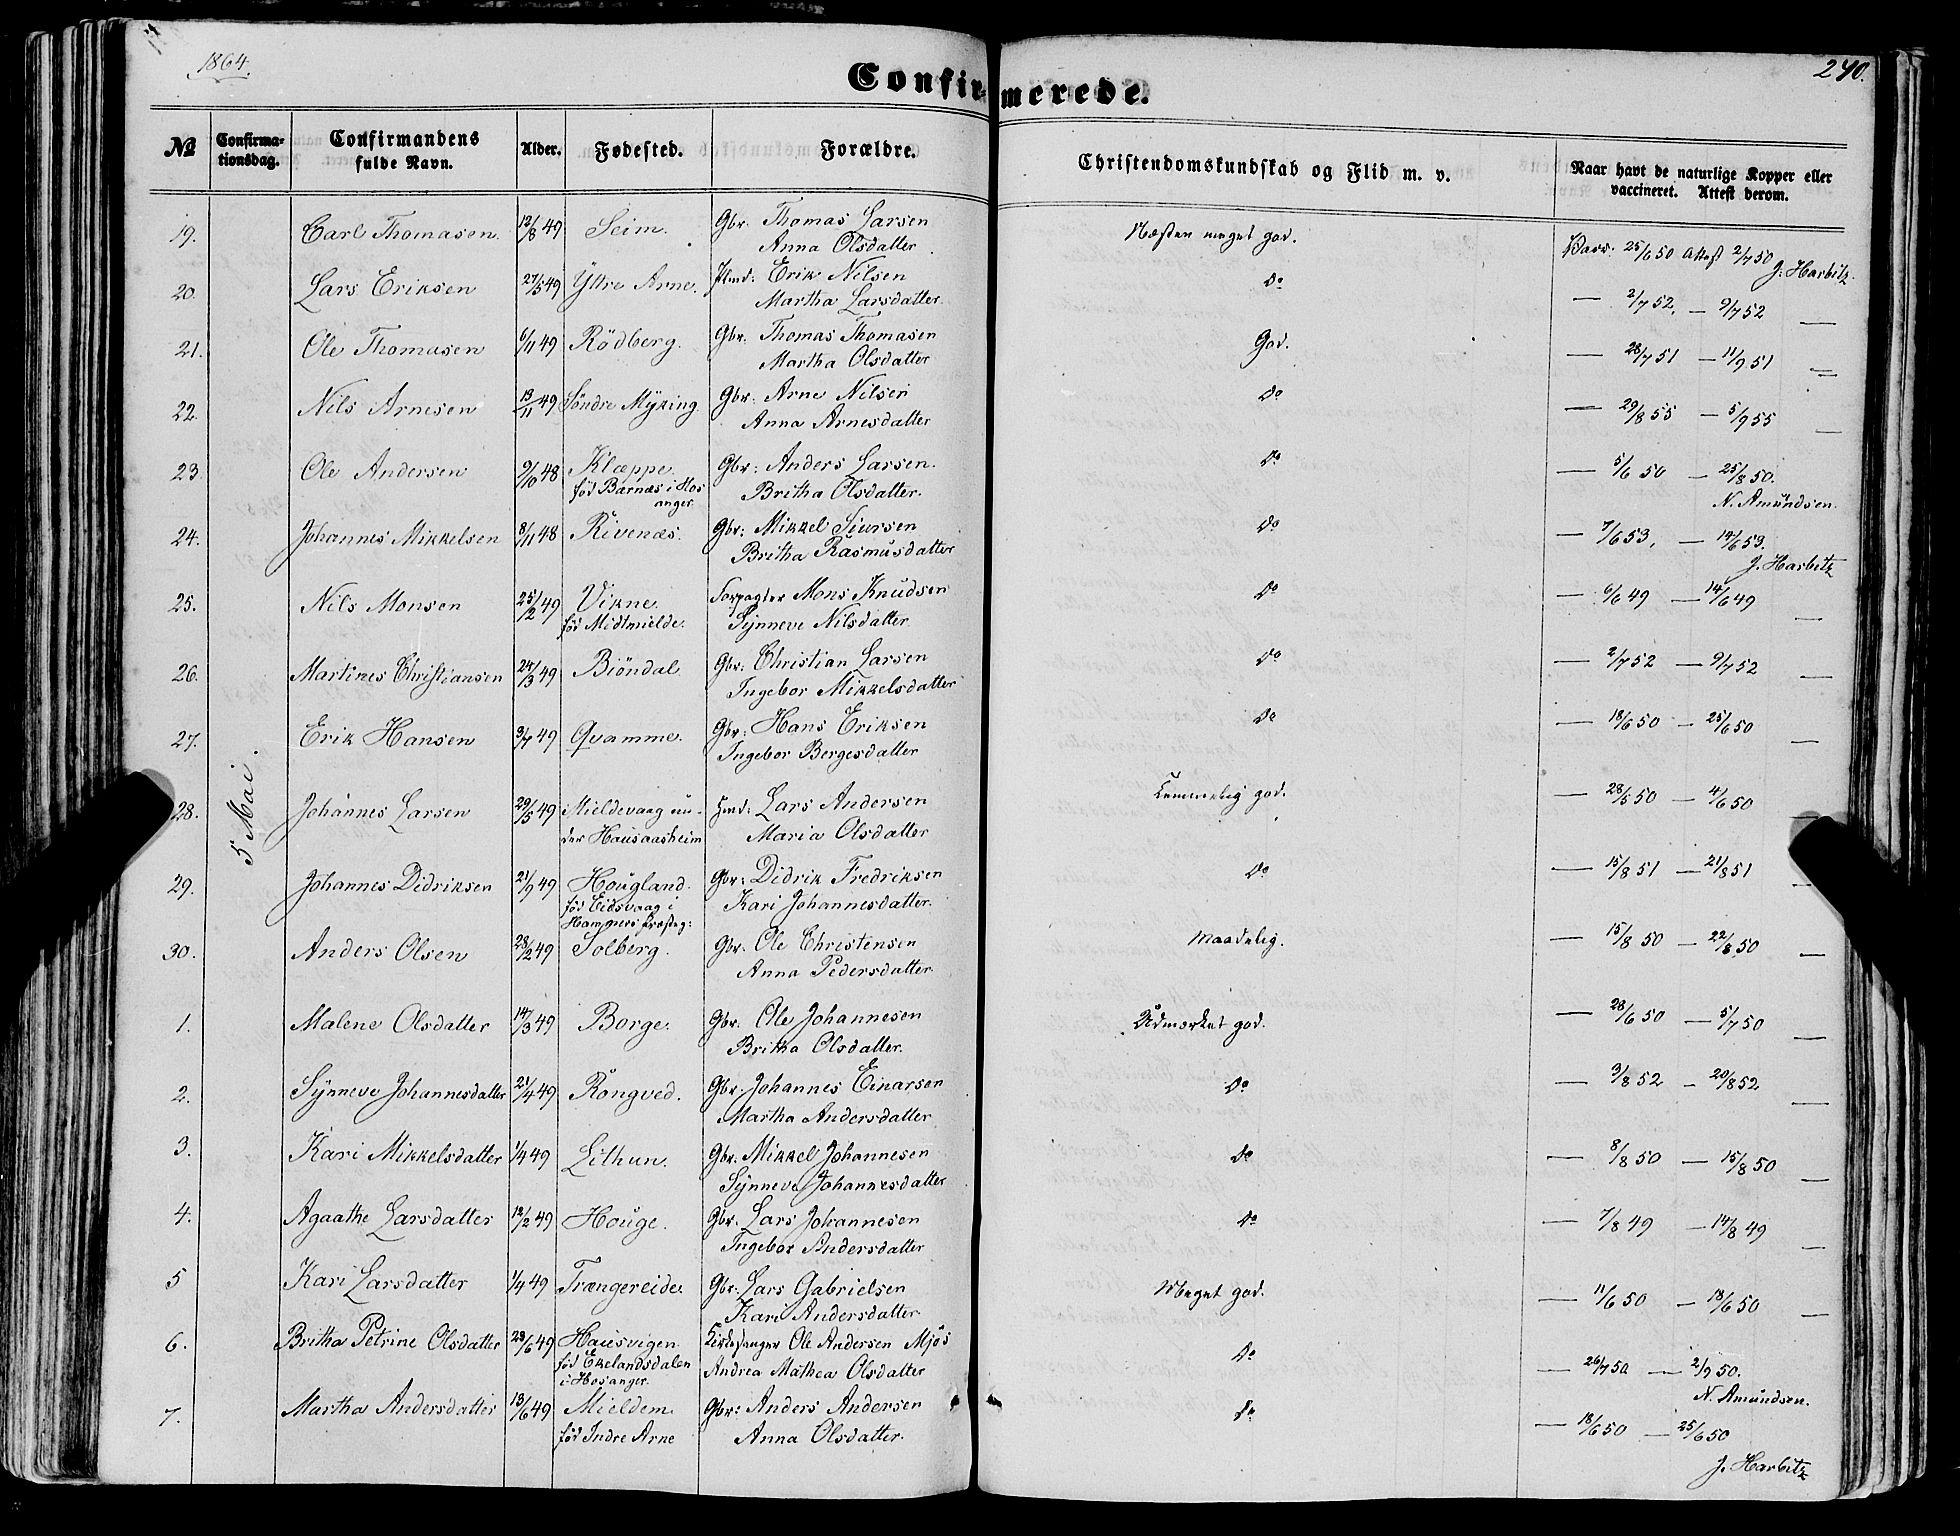 1864.
240.
Confirmerede.
№ Confirmationsdag. Confirmandens fulde Navn. Alder. Fødested. Forældre. Christendomskundskab og Flid m. v. Naar havt de naturlige Kopper eller vaccineret. Attest derom.
5 Mai.
19. Carl Thomasen. 12/8 49 Seim. Gbr. Thomas Larsen Næsten meget god. Vacc. 25/6 50 Attest 2/7 50
Anna Olsdatter J. Harbitz.
20. Lars Eriksen 27/5 49 Yttre Arne. Erik Nilsen Do — 2/7 52, — 9/7 52 —
Martha Larsdatter.
21. Ole Thomasen 6/11 49 Rödberg. Gbr. Thomas Thomasen God. — 28/7 51 — 11/9 51 —
Martha Olsdatter
22. Nils Arnesen 13/11 49 Söndre Myking. Gbr. Arne Nilsen Do — 29/8 55 — 5/9 55 —
Anna Arnesdatter
23. Ole Andersen 9/10 48 Klæppe. Gbr. Anders Larsen. Do — 5/6 50 — 25/8 50.
föd Barnæs i Hosanger. Britha Olsdatter. N. Amündsen.
24. Johannes Mikkelsen 8/11 48 Rivenæs. Gbr. Mikkel Siursen Do — 7/6 53, — 14/6 53.
Britha Rasmusdatter J. Harbitz
25. Nils Monsen 25/2 49 Vikne. Forpagter Mons Knudsen Do — 6/6 49 — 14/6 49 —
föd Midtmielde. Synneve Nilsdatter
26. Martines Christiansen 24/3 49 Biöndal Gbr. Christian Larsen Do — 2/7 52 — 9/7 52 —
Ingebor Mikkelsdatter
27. Erik Hansen 3/7 49 Qvamme. Gbr. Hans Eriksen Do — 18/6 50 — 25/6 50 —
Ingebor Bergesdatter
28. Johannes Larsen 29/5 49 Mieldevaag un- Hmd: Lars Andersen Temmelig god. — 28/5 50 — 4/6 50
der Hausaasheim Maria Olsdatter
29. Johannes Didriksen 21/9 49 Hougland. Gbr. Didrik Fredriksen Do — 15/8 51 — 21/8 51 —
föd Eidsvaag i Kari Johannesdatter.
Hammers Præsteg:
30. Anders Olsen 28/2 49 Solberg. Gbr. Ole Christensen Maadelig. — 15/8 50 — 22/8 50 —
Anna Pedersdatter
1. Malene Olsdatter 14/3 49 Borge. Gbr. Ole Johannesen Udmærket god. — 28/6 50 — 5/7 50 —
Britha Olsdatter.
2. Synneve Johannesdatter 21/4 49 Rongved. Gbr. Johannes Einarsen Do — 3/8 52 — 20/8 52 —
Martha Andersdatter
3. Kari Mikkelsdatter 1/4 49 Lithun. Gbr. Mikkel Johannesen Do — 8/8 50 — 15/8 50 —
Synneve Johannesdatter
4. Agaathe Larsdatter 12/2 49 Houge. Gbr. Lars Johannesen Do — 7/8 49 — 14/8 49 —
Ingebor Andersdatter
5 Kari Larsdatter 1/4 49 Trængereide. Gbr. Lars Gabrielsen Meget god. — 11/6 50 — 18/6 50 —
Kari Andersdatter
6. Britha Petrine Olsdatter 23/6 49 Hausvigen Kirkesanger Ole Andersen Mjös Do — 26/7 50 — 2/9 50.
föd Ekelandsdalen Andrea Mathea Olsdatter N. Amündsen.
i Hosanger.
7. Martha Andersdatter 13/6 49 Mieldem Gbr: Anders Andersen Do — 18/6 50 — 25/6 50
föd Indre Arne Anna Olsdatter. J. Harbitz